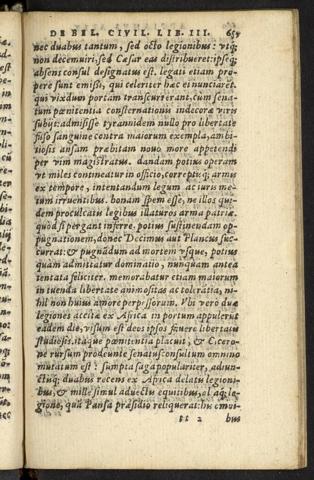 DE BEL. CIVIL. LIB. III.
nec duabus tantum, sed octo legionibus: utq;
non decemuiri, sed Cæsar eas distribueret: ipseq;
absens consul designatus est. legati etiam prope
re sunt emissi, qui celeriter hæc ei nunciarent.
qui uixdum portam transcurrerant, cum sena-
tum pœnitentia consternationis indecoræ uiris
subit: admisisse tyrannidem nullo pro libertate
fuso sanguine contra maiorum exempla, ambi-
tiosis ansam præbitam nouo more appetendi
per uim magistratus. dandam potius operam
ut miles contineatur in officio, correptisq; armis
ex tempore, intentandum legum ac iuris me-
tum irruentibus. bonam spem esse, ne illos qui-
dem proculcatis legibus illaturos arma patriæ.
quòd si pergant inferre. potius sustinendam op-
pugnationem, donec Decimus aut Plancus suc-
currat: & pugnãdum ad mortem usque, potius
quàm admittatur dominatio, nunquam antea
tentata feliciter. memorabatur etiam maiorum
in tuenda libertate animositas ac tolerãtia, ni-
hil non huius amore perpessorum. Vbi uerò duæ
legiones accitæ ex Africa in portum appulerut
eadem die, uisum est deos ipsos fauere libertatis
studiosis. itaque pœnitentia placuit, & Cicero-
ne rursum prodeunte senatuscõsultum omnino
mutatum est: sumpta saga populariter, adiun-
ctisq; duabus recens ex Africa delatis legioni-
bus, & mille simul aduectis equitibus, et aq; le-
gione, quã Pansa præsidio reliquerat: his omni-
ss 2 bus